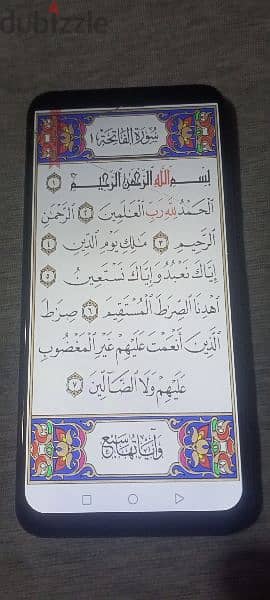 dubizzle
سورة الفاتحة ١
بِسْمِ اللَّهِ الرَّحْمَٰنِ الرَّحِيمِ ١
الْحَمْدُ لِلَّهِ رَبِّ الْعَٰلَمِينَ ٢ الرَّحْمَٰنِ
الرَّحِيمِ ٣ مَٰلِكِ يَوْمِ الدِّينِ ٤
إِيَّاكَ نَعْبُدُ وَإِيَّاكَ نَسْتَعِينُ ٥
اهْدِنَا الصِّرَٰطَ الْمُسْتَقِيمَ ٦ صِرَٰطَ
الَّذِينَ أَنْعَمْتَ عَلَيْهِمْ غَيْرِ الْمَغْضُوبِ
عَلَيْهِمْ وَلَا الضَّالِّينَ ٧
وآياتها سبع